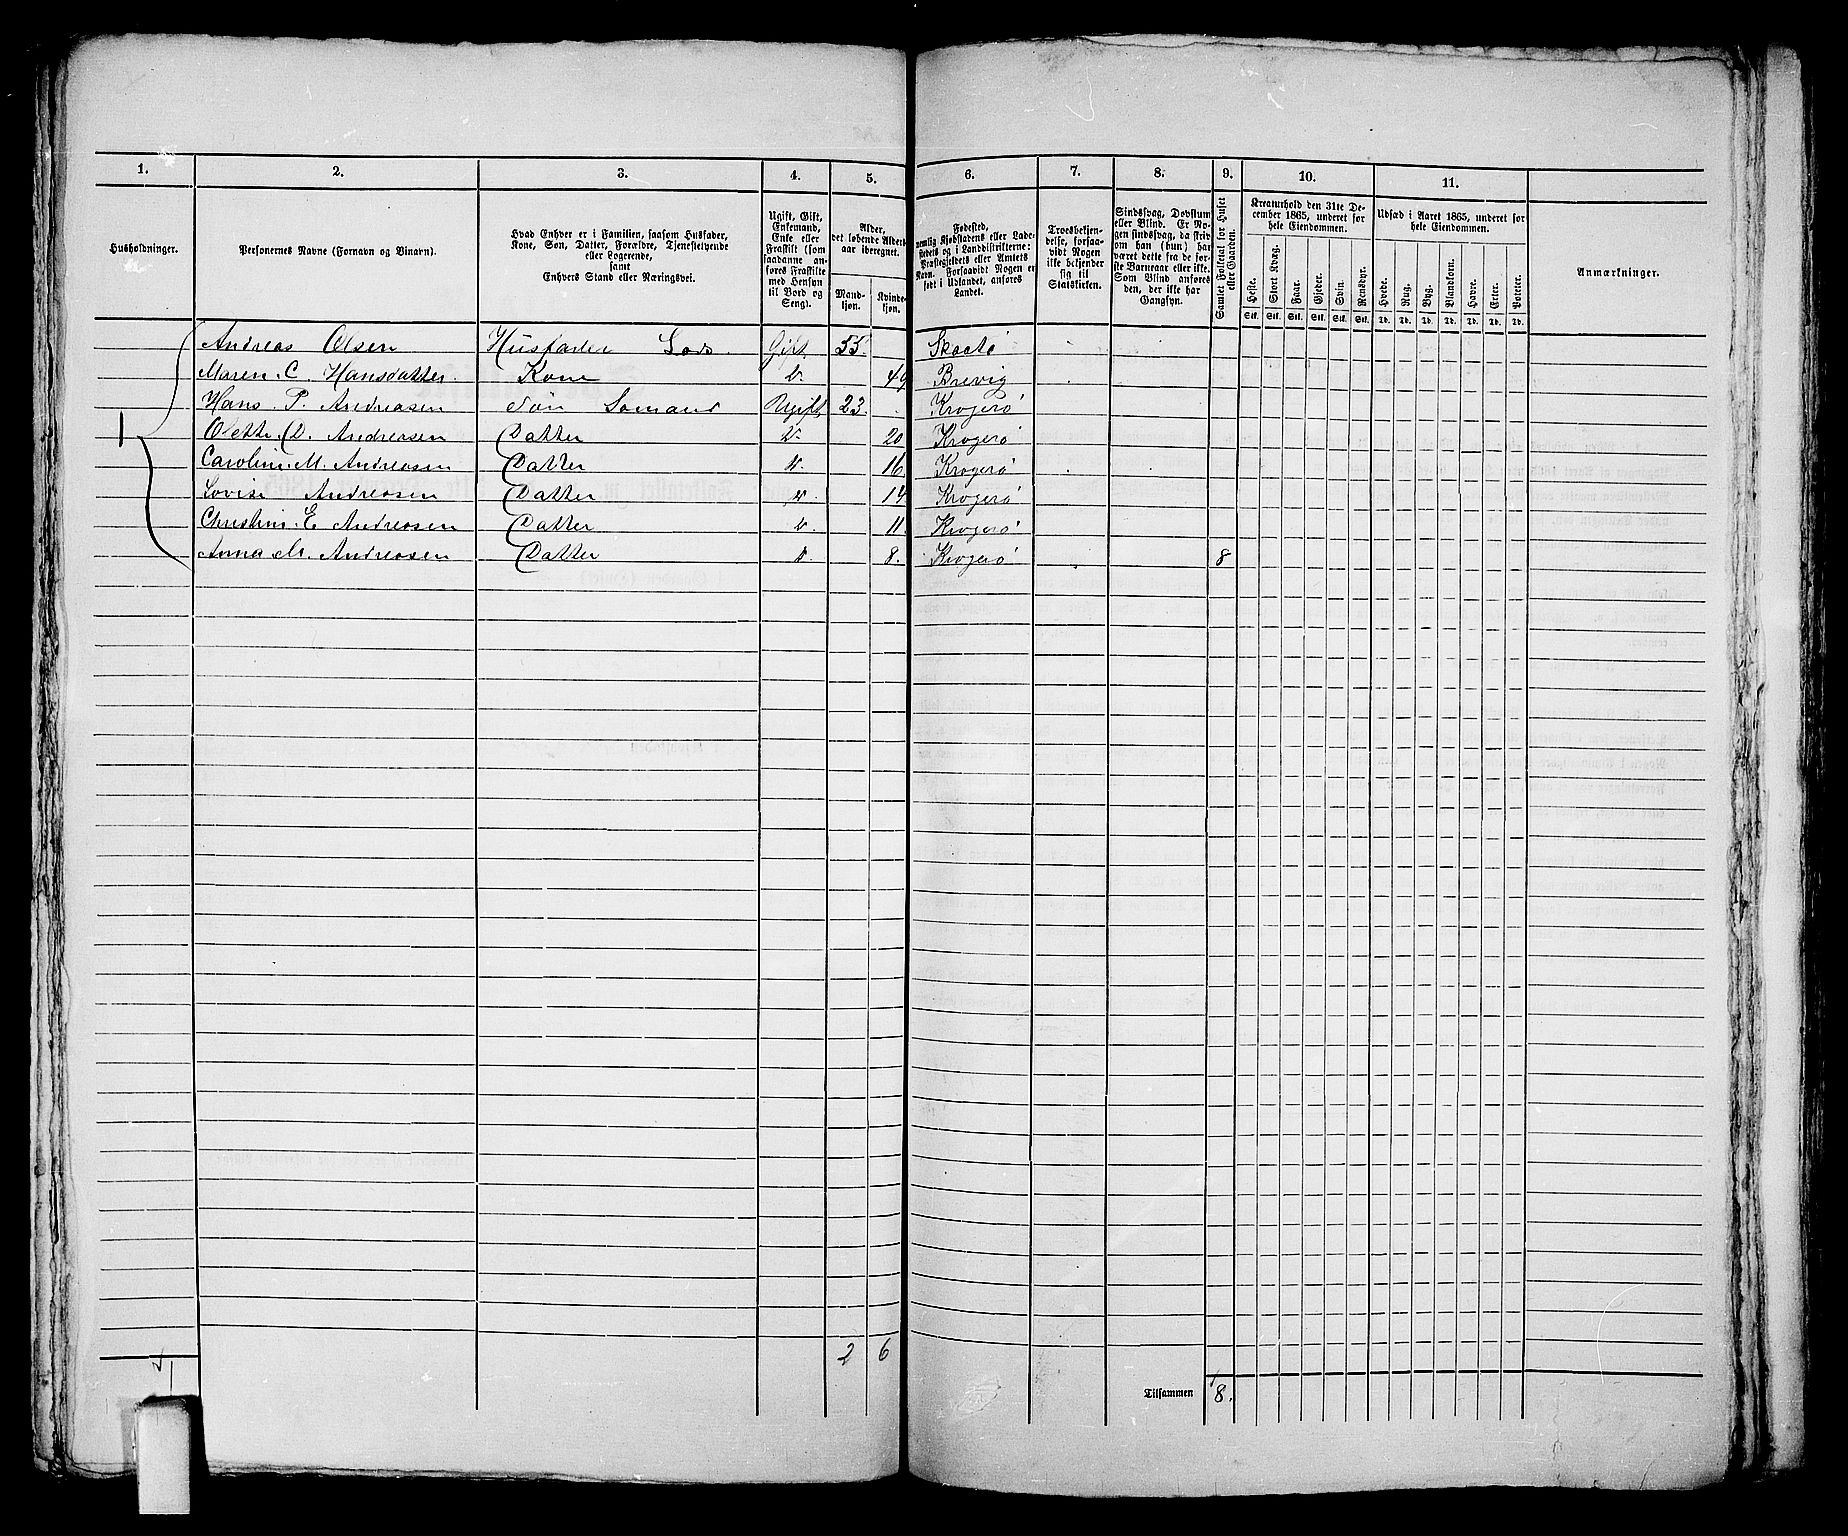 1. 2. 3. 4. 5. 6. 7. 8. 9. 10. 11.
Husholdninger.
Personernes Navne (Fornavn og Binavn).
Hvad Enhver er i Familien, saasom Husfader,
Kone, Søn, Datter, Forældre, Tjenestetyende
eller Logerende,
samt
Enhvers Stand eller Næringsvei.
Ugift, Gift,
Enkemand,
Enke eller
Fraskilt (som
saadanne an-
føres Fraskilte
med Hensyn
til Bord og
Seng).
Alder,
det løbende Alders-
aar iberegnet.
Mand-
kjøn.
Kvinde-
kjøn.
Fødested,
nemlig Kjøbstadens eller Lade-
stedets og i Landdistrikterne:
Præstegjeldets eller Amtets
Navn. Forsaavidt Nogen er
født i Udlandet, anføres
Landet.
Troesbekjen-
delse, forsaa-
vidt Nogen
ikke bekjender
sig til
Statskirken.
Sindssvag, Døvstum
eller Blind. Er No-
gen sindssvag, da skriv
om han (hun) har
været dette fra de før-
ste Barneaar eller ikke.
Som Blind anføres
den, der ikke har
Gangsyn.
Samlet Folketal for Huset
eller Gaarden.
Kreaturhold den 31te De-
cember 1865, underet for
hele Eiendommen.
Heste. Stort Kvæg. Faar. Gjeder. Svin. Rensdyr.
Stk. Stk. Stk. Stk. Stk. Stk.
Udsæd i Aaret 1865, underet for
hele Eiendommen.
Hvede. Rug. Byg. Blandkorn. Havre. Erter. Poteter.
Td. Td. Td. Td. Td. Td. Td.
Anmærkninger.
Andreas Olsen Husfader Lods. Gift 55. Skaatø
Maren C. Hansdatter. Kone v. 49 Brevig
1 Hans P. Andreasen Søn Sømand Ugift 23. Krogerø
Olette D. Andreasen Datter v. 20 Krogerø
Caroline M. Andreasen Datter v. 16 Krogerø
Lovise Andreasen Datter v. 14 Krogerø
Christine E. Andreasen Datter v. 11. Krogerø
Anna M. Andreasen Datter v. 8. Krogerø 8
1 2 6
Tilsammen 8.